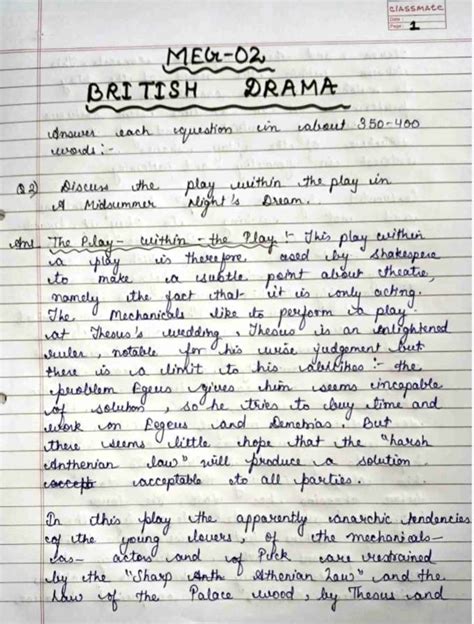 CLASSMATE
Date :
Page : 1
MEG-02
BRITISH DRAMA
Answer each question in about 350-400
words:-
Q2) Discuss the play within the play in
A Midsummer Night's Dream.
Ans The Play- within - the Play :- This play within
a play is therefore, used by Shakespere
to make a subtle point about theatre,
namely the fact that it is only acting.
The Mechanicals like to perform a play
at Thesus's wedding. Thesus is an enlightened
ruler, notable for his wise judgement but
there is a limit to his abilities :- the
problem Egeus gives him seems incapable
of solution, so he tries to buy time and
work on Eegeus and Demetrias. But
there seems little hope that the "harsh
Anthenian law" will produce a solution
accep acceptable to all parties.
In this play the apparently anarchic tendencies
of the young lovers, of the mechanicals-
as- actors and of Puck are restrained
by the "Sharp Anth Athenian Law" and the
Law of the Palace wood, by Thesus and